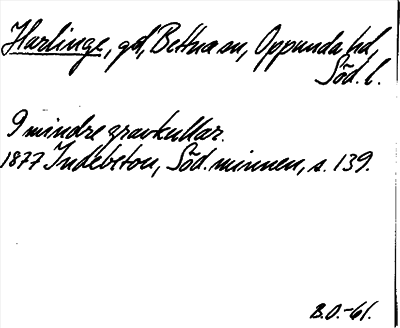 Harlinge, gd, Bettna sn, Oppunda hd,
Söd. l.
9 mindre gravkullar.
1877 Indebetou, Söd. minnen, s. 139.
B.O.-61.